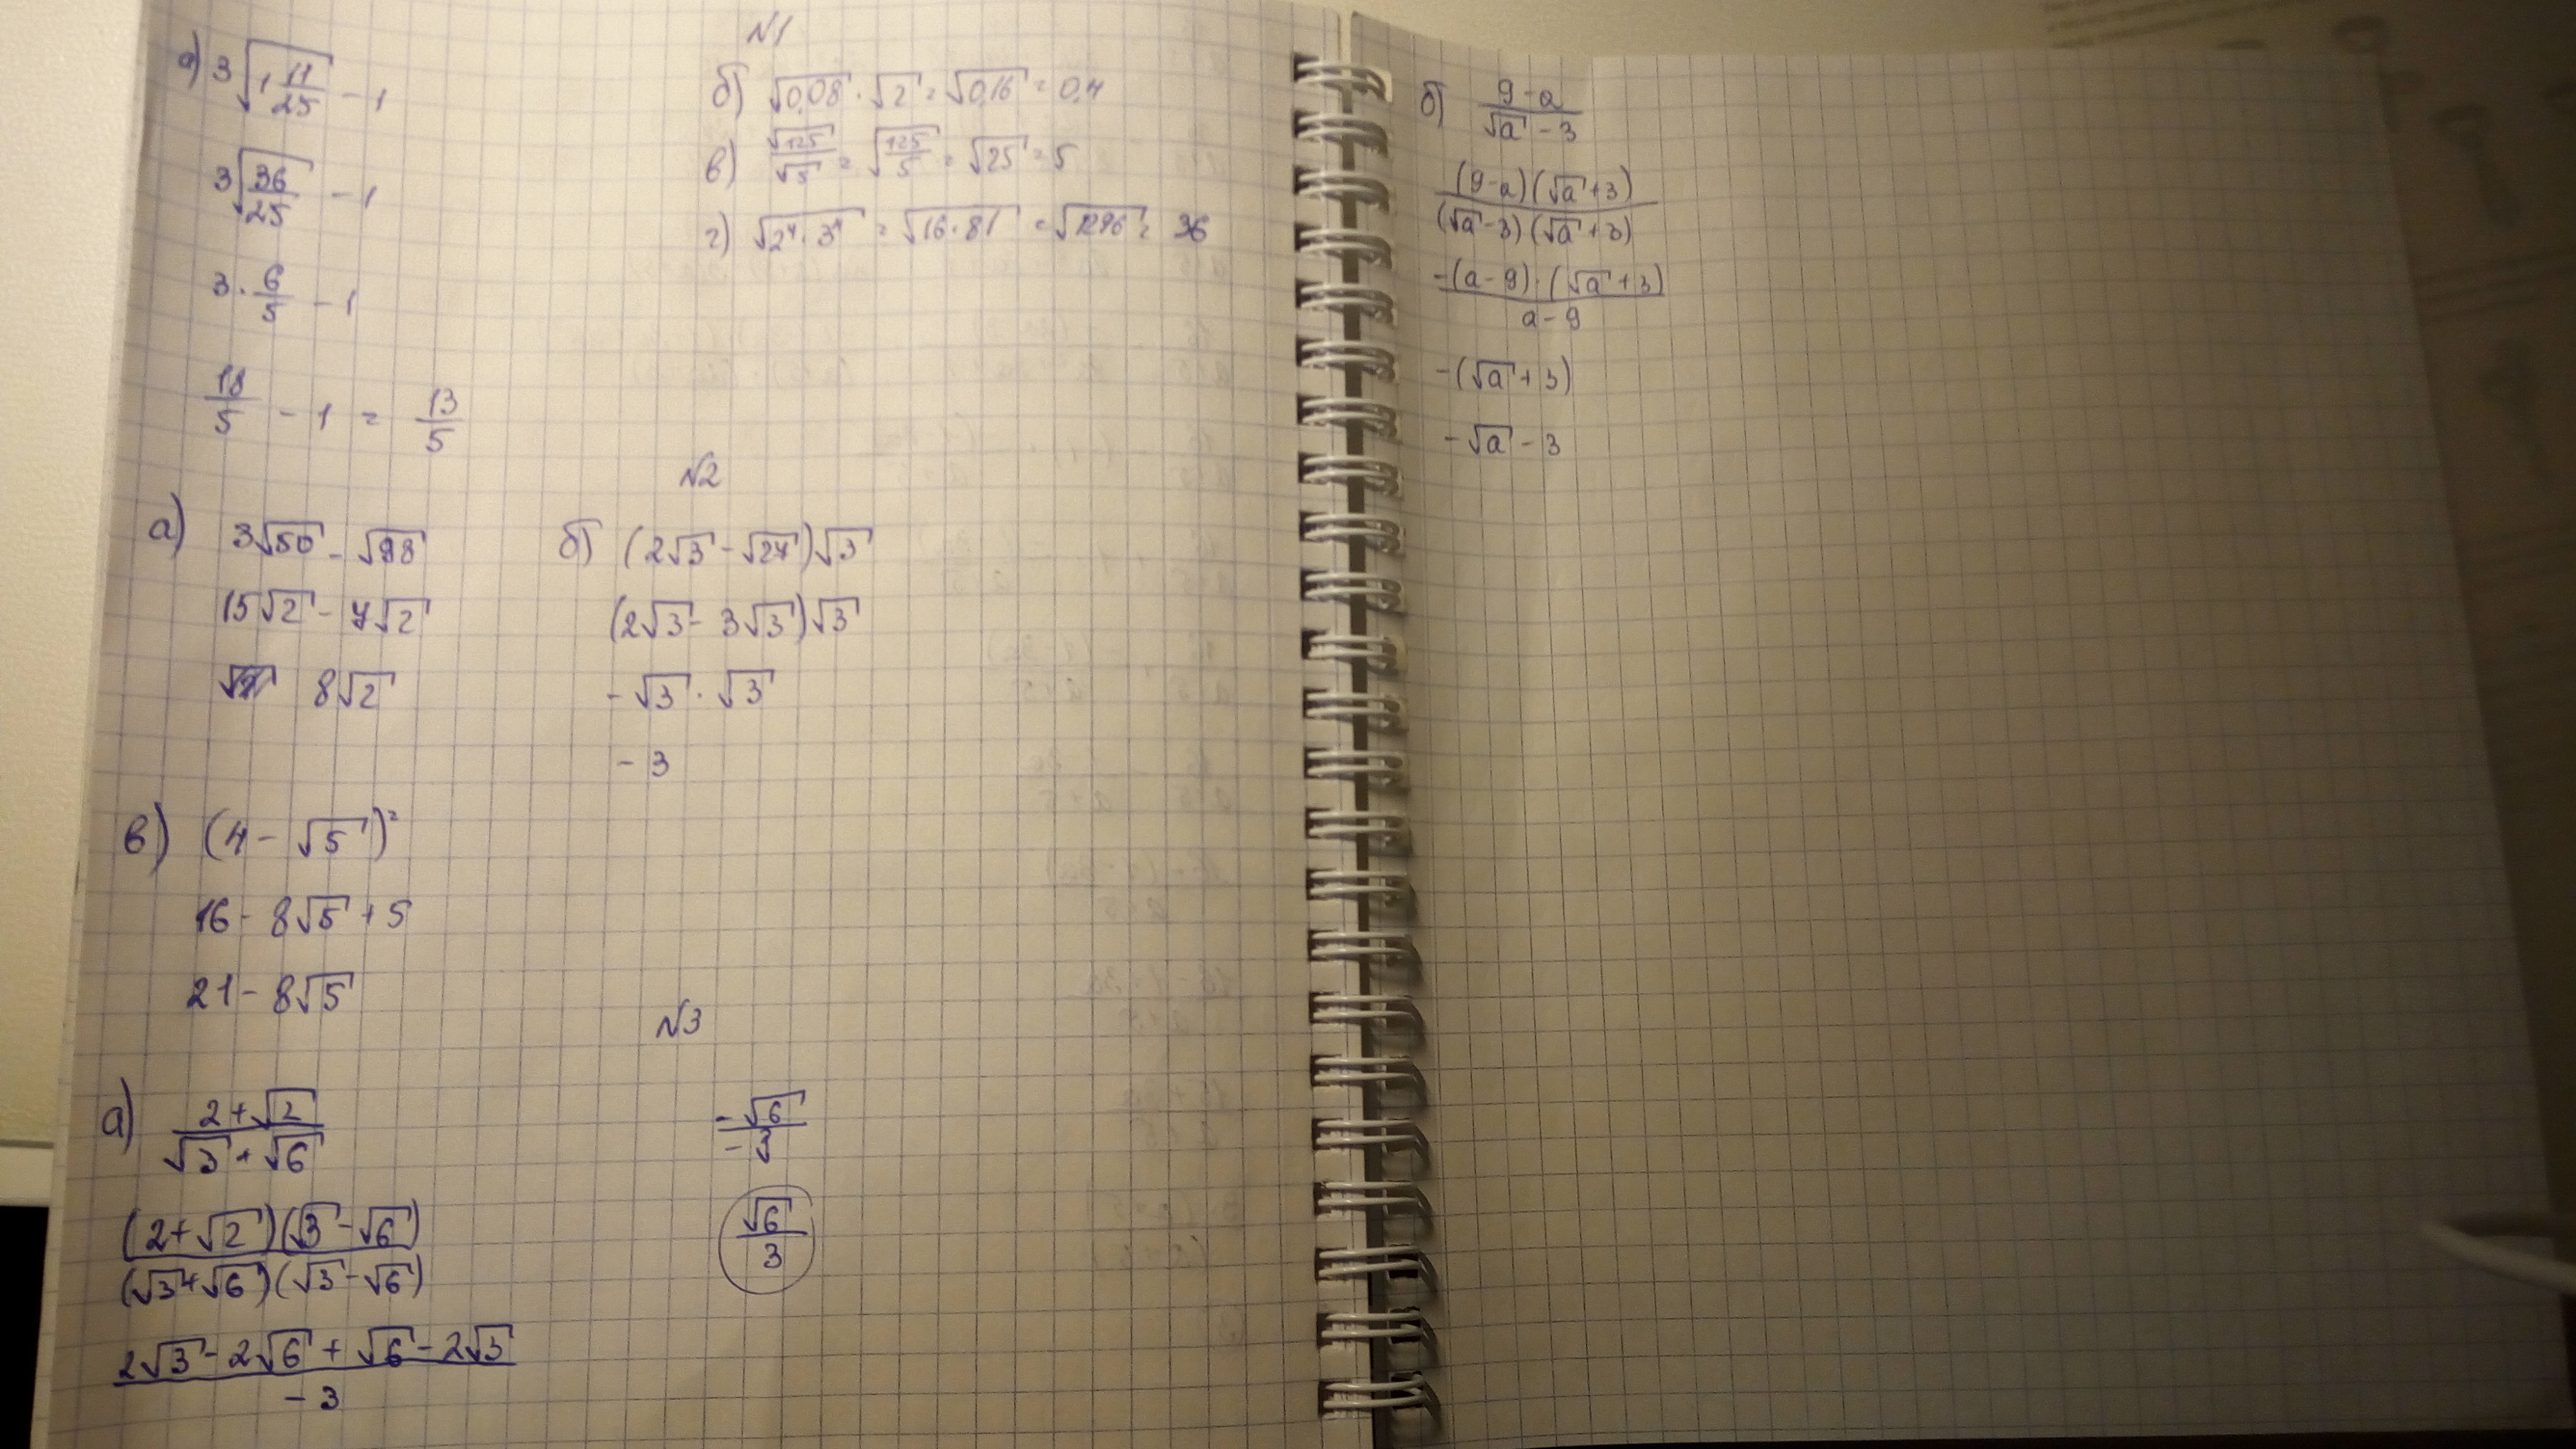 №1
а) 3√(1 11/25) - 1
3√(36/25) - 1
3 · 6/5 - 1
18/5 - 1 = 13/5
б) √0,08 · √2 = √0,16 = 0,4
в) √125/√5 = √(125/5) = √25 = 5
г) √(2⁴ · 3⁴) = √(16 · 81) = √1296 = 36
№2
а) 3√50 - √98
15√2 - 7√2
8√2
б) (2√3 - √27)√3
(2√3 - 3√3)√3
-√3 · √3
- 3
в) (4 - √5)²
16 - 8√5 + 5
21 - 8√5
№3
а) (2 + √2)/(√3 + √6)
(2 + √2)(√3 - √6)/(√3 + √6)(√3 - √6)
(2√3 - 2√6 + √6 - 2√3)/(-3)
-√6/-3
√6/3
б) (9 - a)/(√a - 3)
(9 - a)(√a + 3)/(√a - 3)(√a + 3)
-(a - 9) · (√a + 3)/(a - 9)
-(√a + 3)
-√a - 3